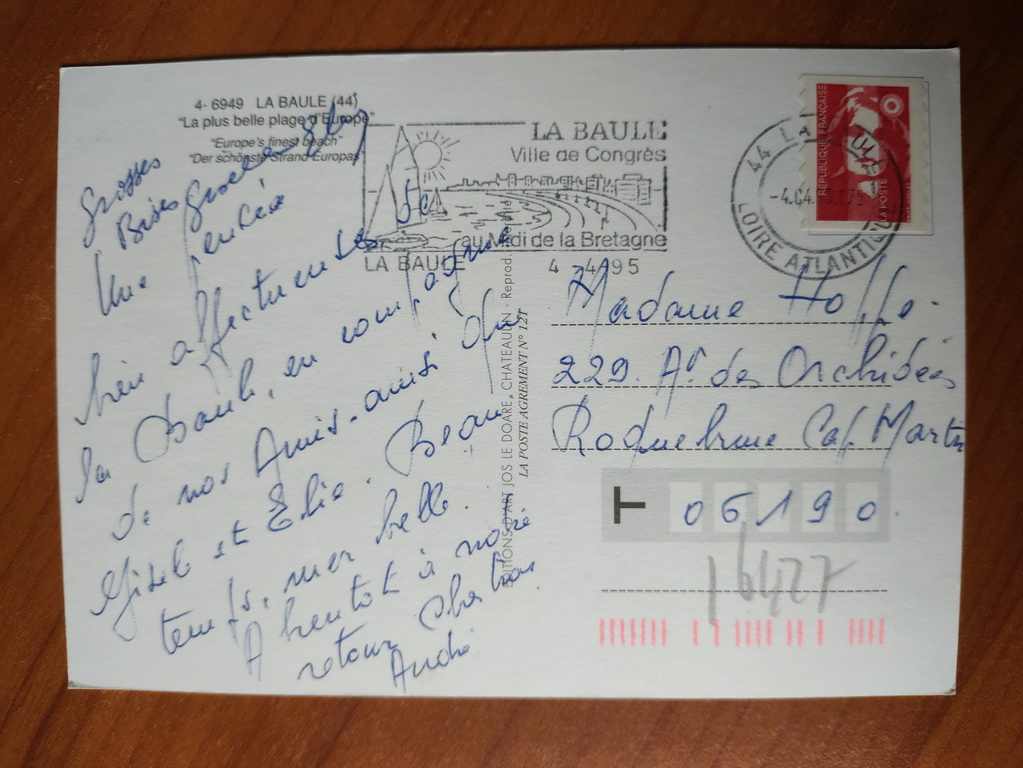 4- 6949 LA BAULE (44)
"La plus belle plage d'Europe"
"Europe's finest beach"
"Der schönste Strand Europas"
LA BAULE
Ville de Congrès
au Midi de la Bretagne
LA BAULE 4 -4 95
44 LA BAULE
-4.04.
LOIRE ATLANTIQUE
RÉPUBLIQUE FRANÇAISE
LA POSTE
Grosses
Bises
Une pensée
bien affectueuse de
la Baule, en compagnie
de nos Amis-amis du
Gisèle et Élie. Beau
temps, mer belle.
A bientôt à notre
retour
André
EDITIONS D'ART JOS LE DOARE, CHATEAULIN - Reprod. interdite
LA POSTE AGREMENT N° 12T
Madame
229. Av. des Orchidées
Roquebrune Cap. Martin
T 06190.
16427